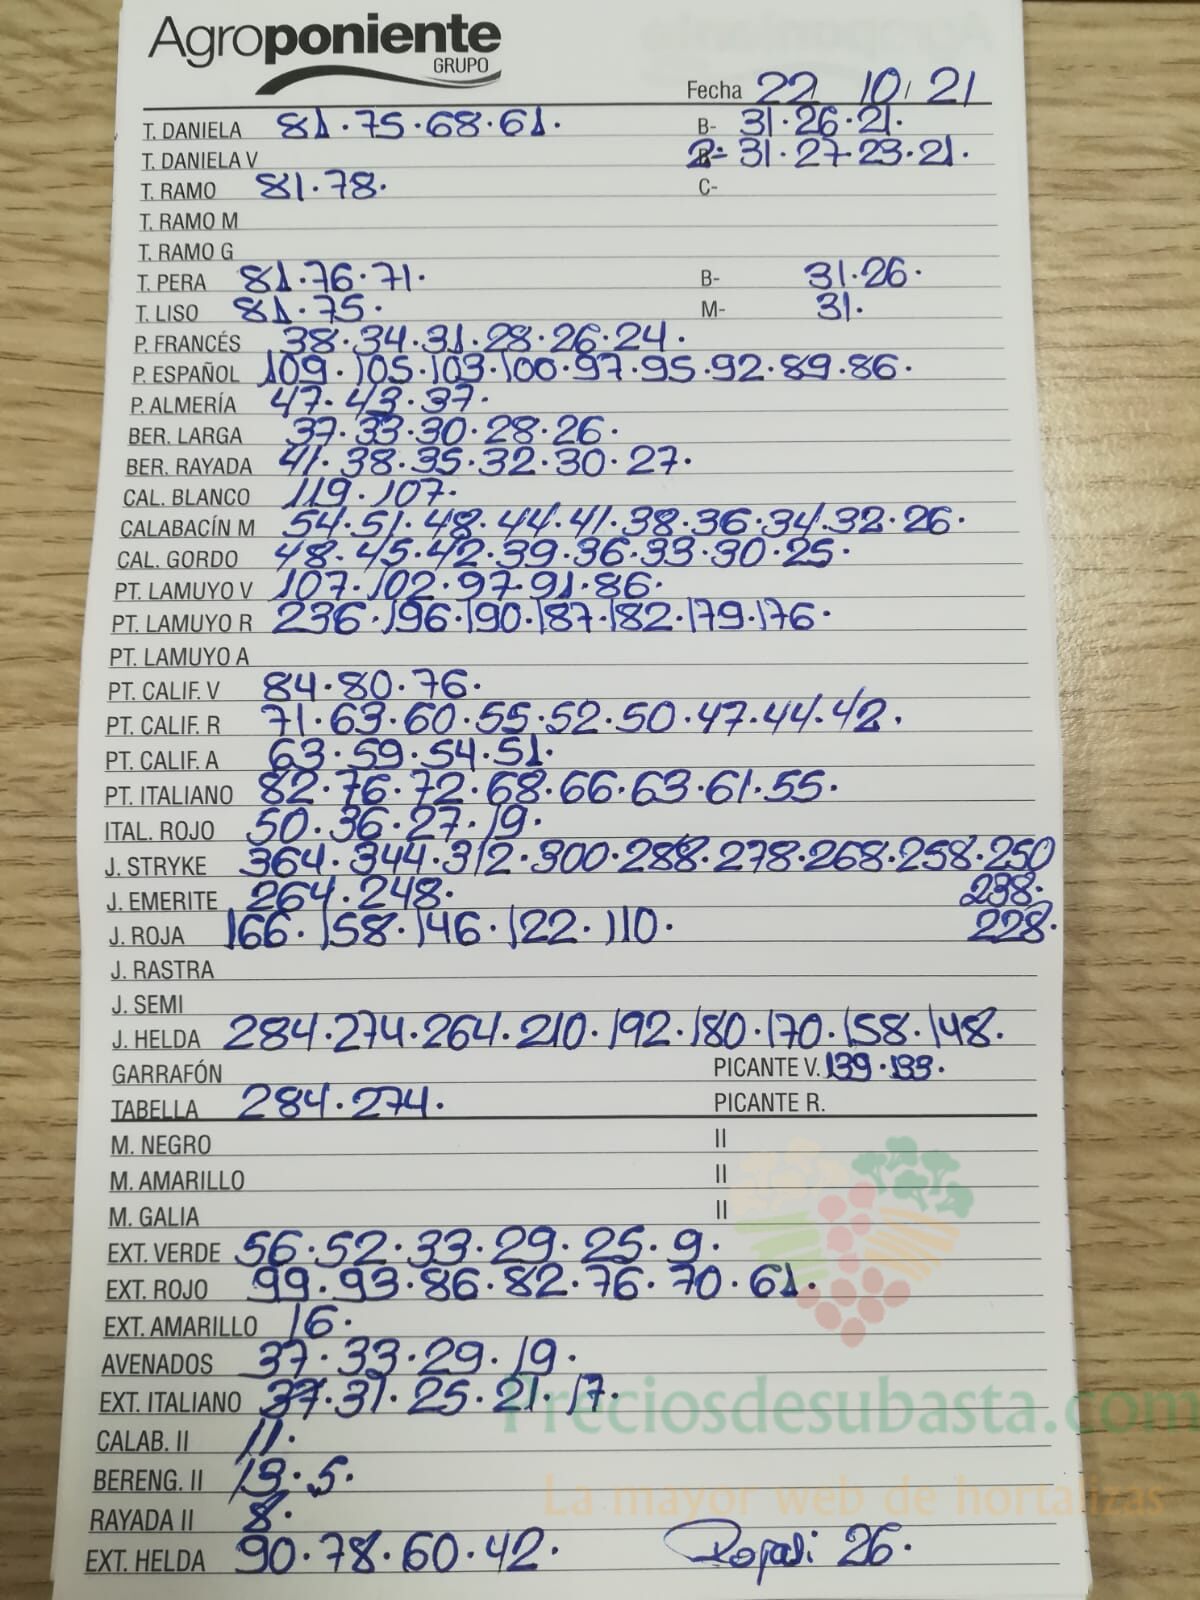 Agroponiente
GRUPO
Fecha 22/10/21
T. DANIELA 81·75·68·61· B- 31·26·21·
T. DANIELA V 2- 31·27·23·21·
T. RAMO 81·78· C-
T. RAMO M
T. RAMO G
T. PERA 81·76·71· B- 31·26·
T. LISO 81·75· M- 31·
P. FRANCÉS 38·34·31·28·26·24·
P. ESPAÑOL 109·105·103·100·97·95·92·89·86·
P. ALMERÍA 47·43·37·
BER. LARGA 37·33·30·28·26·
BER. RAYADA 41·38·35·32·30·27·
CAL. BLANCO 119·107·
CALABACÍN M 54·51·48·44·41·38·36·34·32·26·
CAL. GORDO 48·45·42·39·36·33·30·25·
PT. LAMUYO V 107·102·97·91·86·
PT. LAMUYO R 236·196·190·187·182·179·176·
PT. LAMUYO A
PT. CALIF. V 84·80·76·
PT. CALIF. R 71·63·60·55·52·50·47·44·42·
PT. CALIF. A 63·59·54·51·
PT. ITALIANO 82·76·72·68·66·63·61·55·
ITAL. ROJO 50·36·27·19·
J. STRYKE 364·344·312·300·288·278·268·258·250
J. EMERITE 264·248· 238·
J. ROJA 166·158·146·122·110· 228·
J. RASTRA
J. SEMI
J. HELDA 284·274·264·210·192·180·170·158·148·
GARRAFÓN PICANTE V. 139·133·
TABELLA 284·274· PICANTE R.
M. NEGRO II
M. AMARILLO II
M. GALIA II
EXT. VERDE 56·52·33·29·25·9·
EXT. ROJO 99·93·86·82·76·70·61·
EXT. AMARILLO 16·
AVENADOS 37·33·29·19·
EXT. ITALIANO 37·31·25·21·17·
Preciosdesubasta.com
CALAB. II 11·
BERENG. II 13·5·
La mayor web de hortalizas
RAYADA II 8·
EXT. HELDA 90·78·60·42· 26·